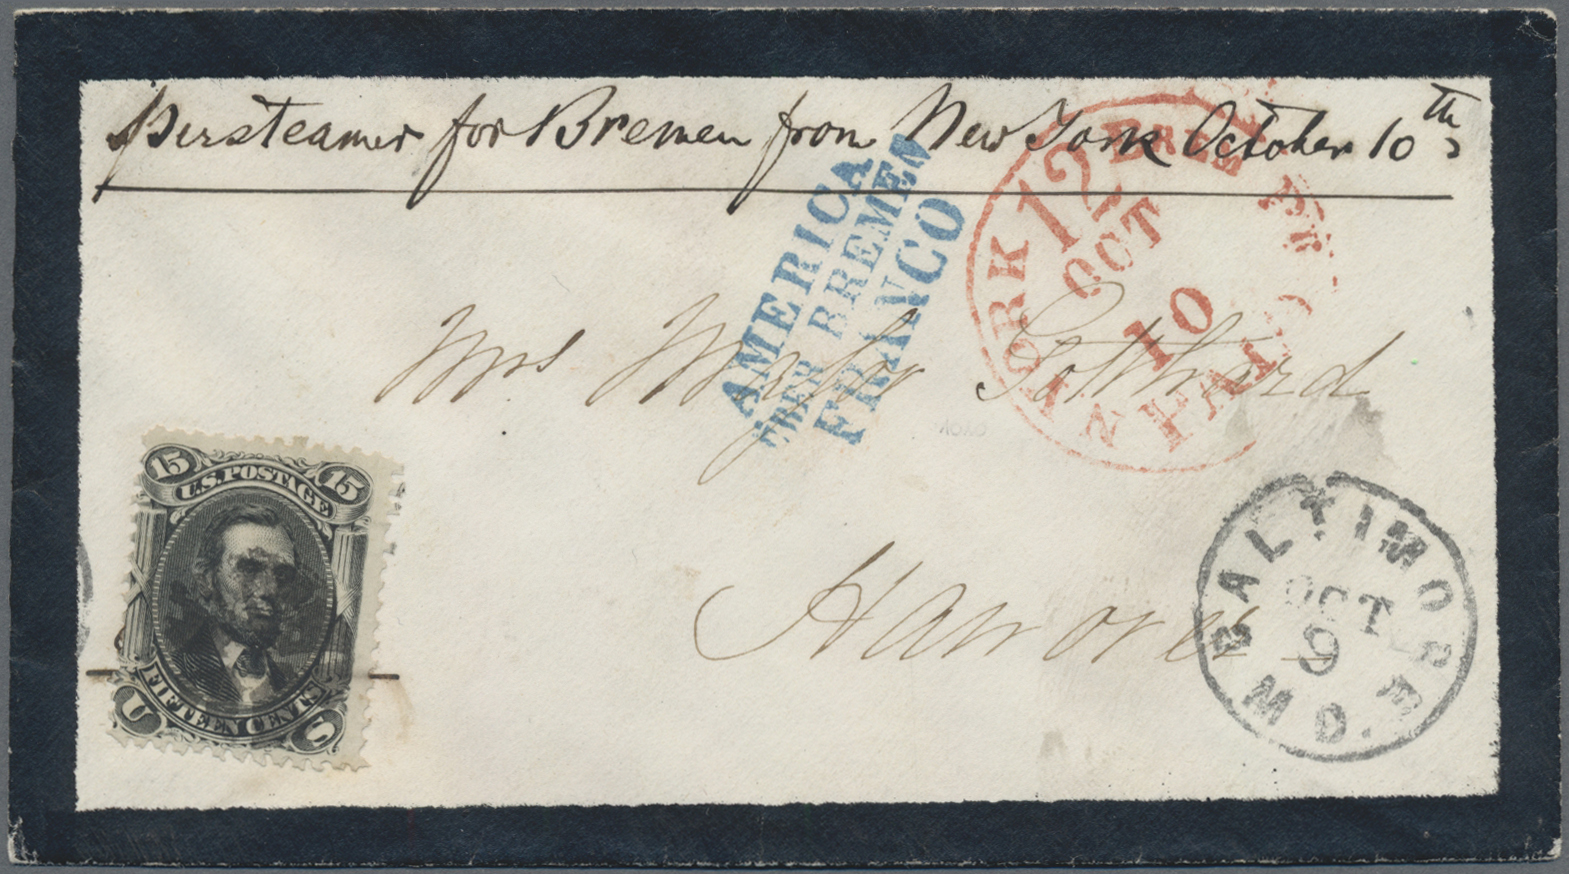 per steamer for Bremen from New York October 10th
AMERICA
ÜBER BREMEN
FRANCO
N. YORK BREM. PK PAID
12
OCT
10
Mrs Major Gotthard
Hanover
15 15
U.S. POSTAGE
FIFTEEN CENTS
U S
BALTIMORE
OCT
9
MD.